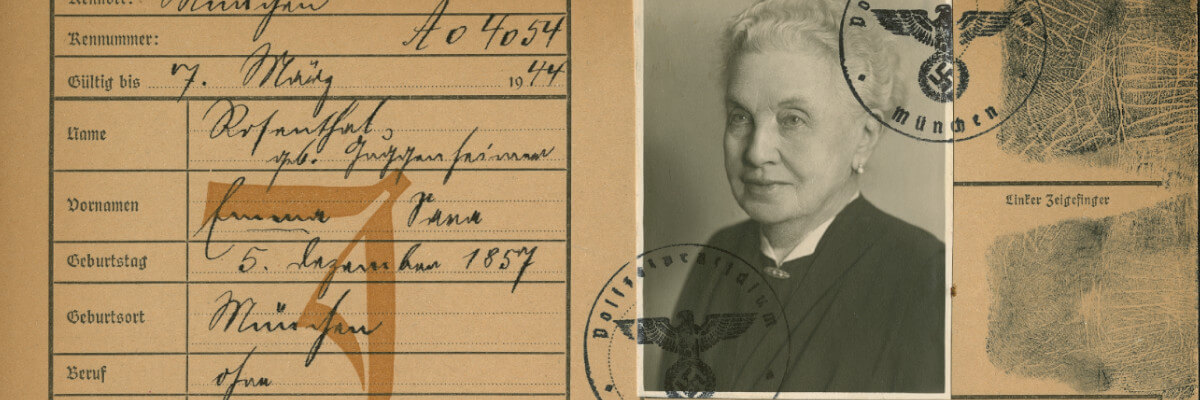 Kennort: München
Kennummer: A 04054
Gültig bis 7. März 1944
Name Rosenthal,
geb. Guggenheimer
Vornamen Emma Sara
Geburtstag 5. Dezember 1857
Geburtsort München
Beruf ohne
J
München
Linker Zeigefinger
Polizeipräsidium